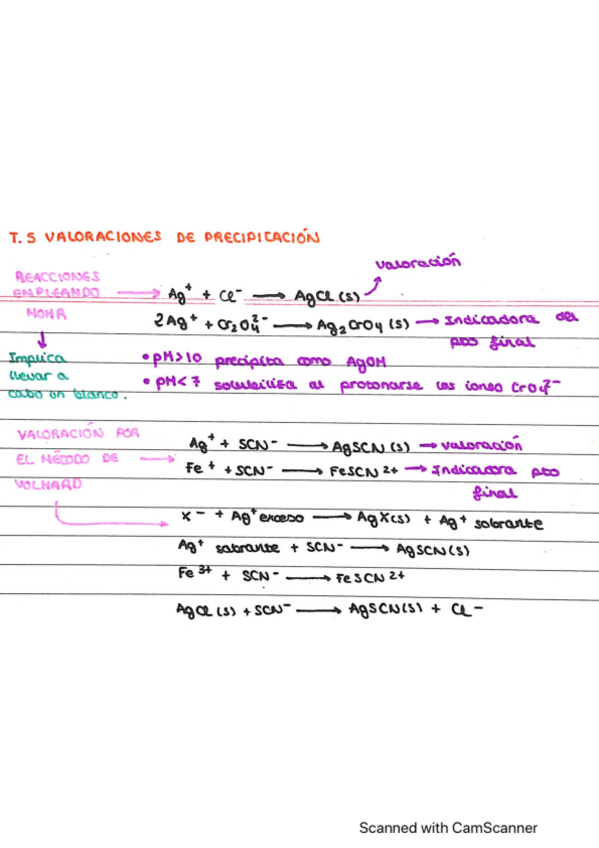 T.5 VALORACIONES DE PRECIPITACIÓN
valoración
REACCIONES
EMPLEANDO → Ag⁺ + Cl⁻ → AgCl (s)
MOHR
2Ag⁺ + Cr₂O₄²⁻ → Ag₂CrO₄ (s) → Indicadora del
pto final
Implica
llevar a
cabo un blanco.
• pH>10 precipita como AgOH
• pH<7 solubiliza al protonarse los iones CrO₄²⁻
VALORACIÓN POR
EL MÉTODO DE
VOLHARD
Ag⁺ + SCN⁻ → AgSCN (s) → valoración
Fe⁺ + SCN⁻ → FeSCN²⁺ → Indicadora pto
final
X⁻ + Ag⁺ exceso → AgX(s) + Ag⁺ sobrante
Ag⁺ sobrante + SCN⁻ → AgSCN(s)
Fe³⁺ + SCN⁻ → FeSCN²⁺
AgCl (s) + SCN⁻ → AgSCN(s) + Cl⁻
Scanned with CamScanner